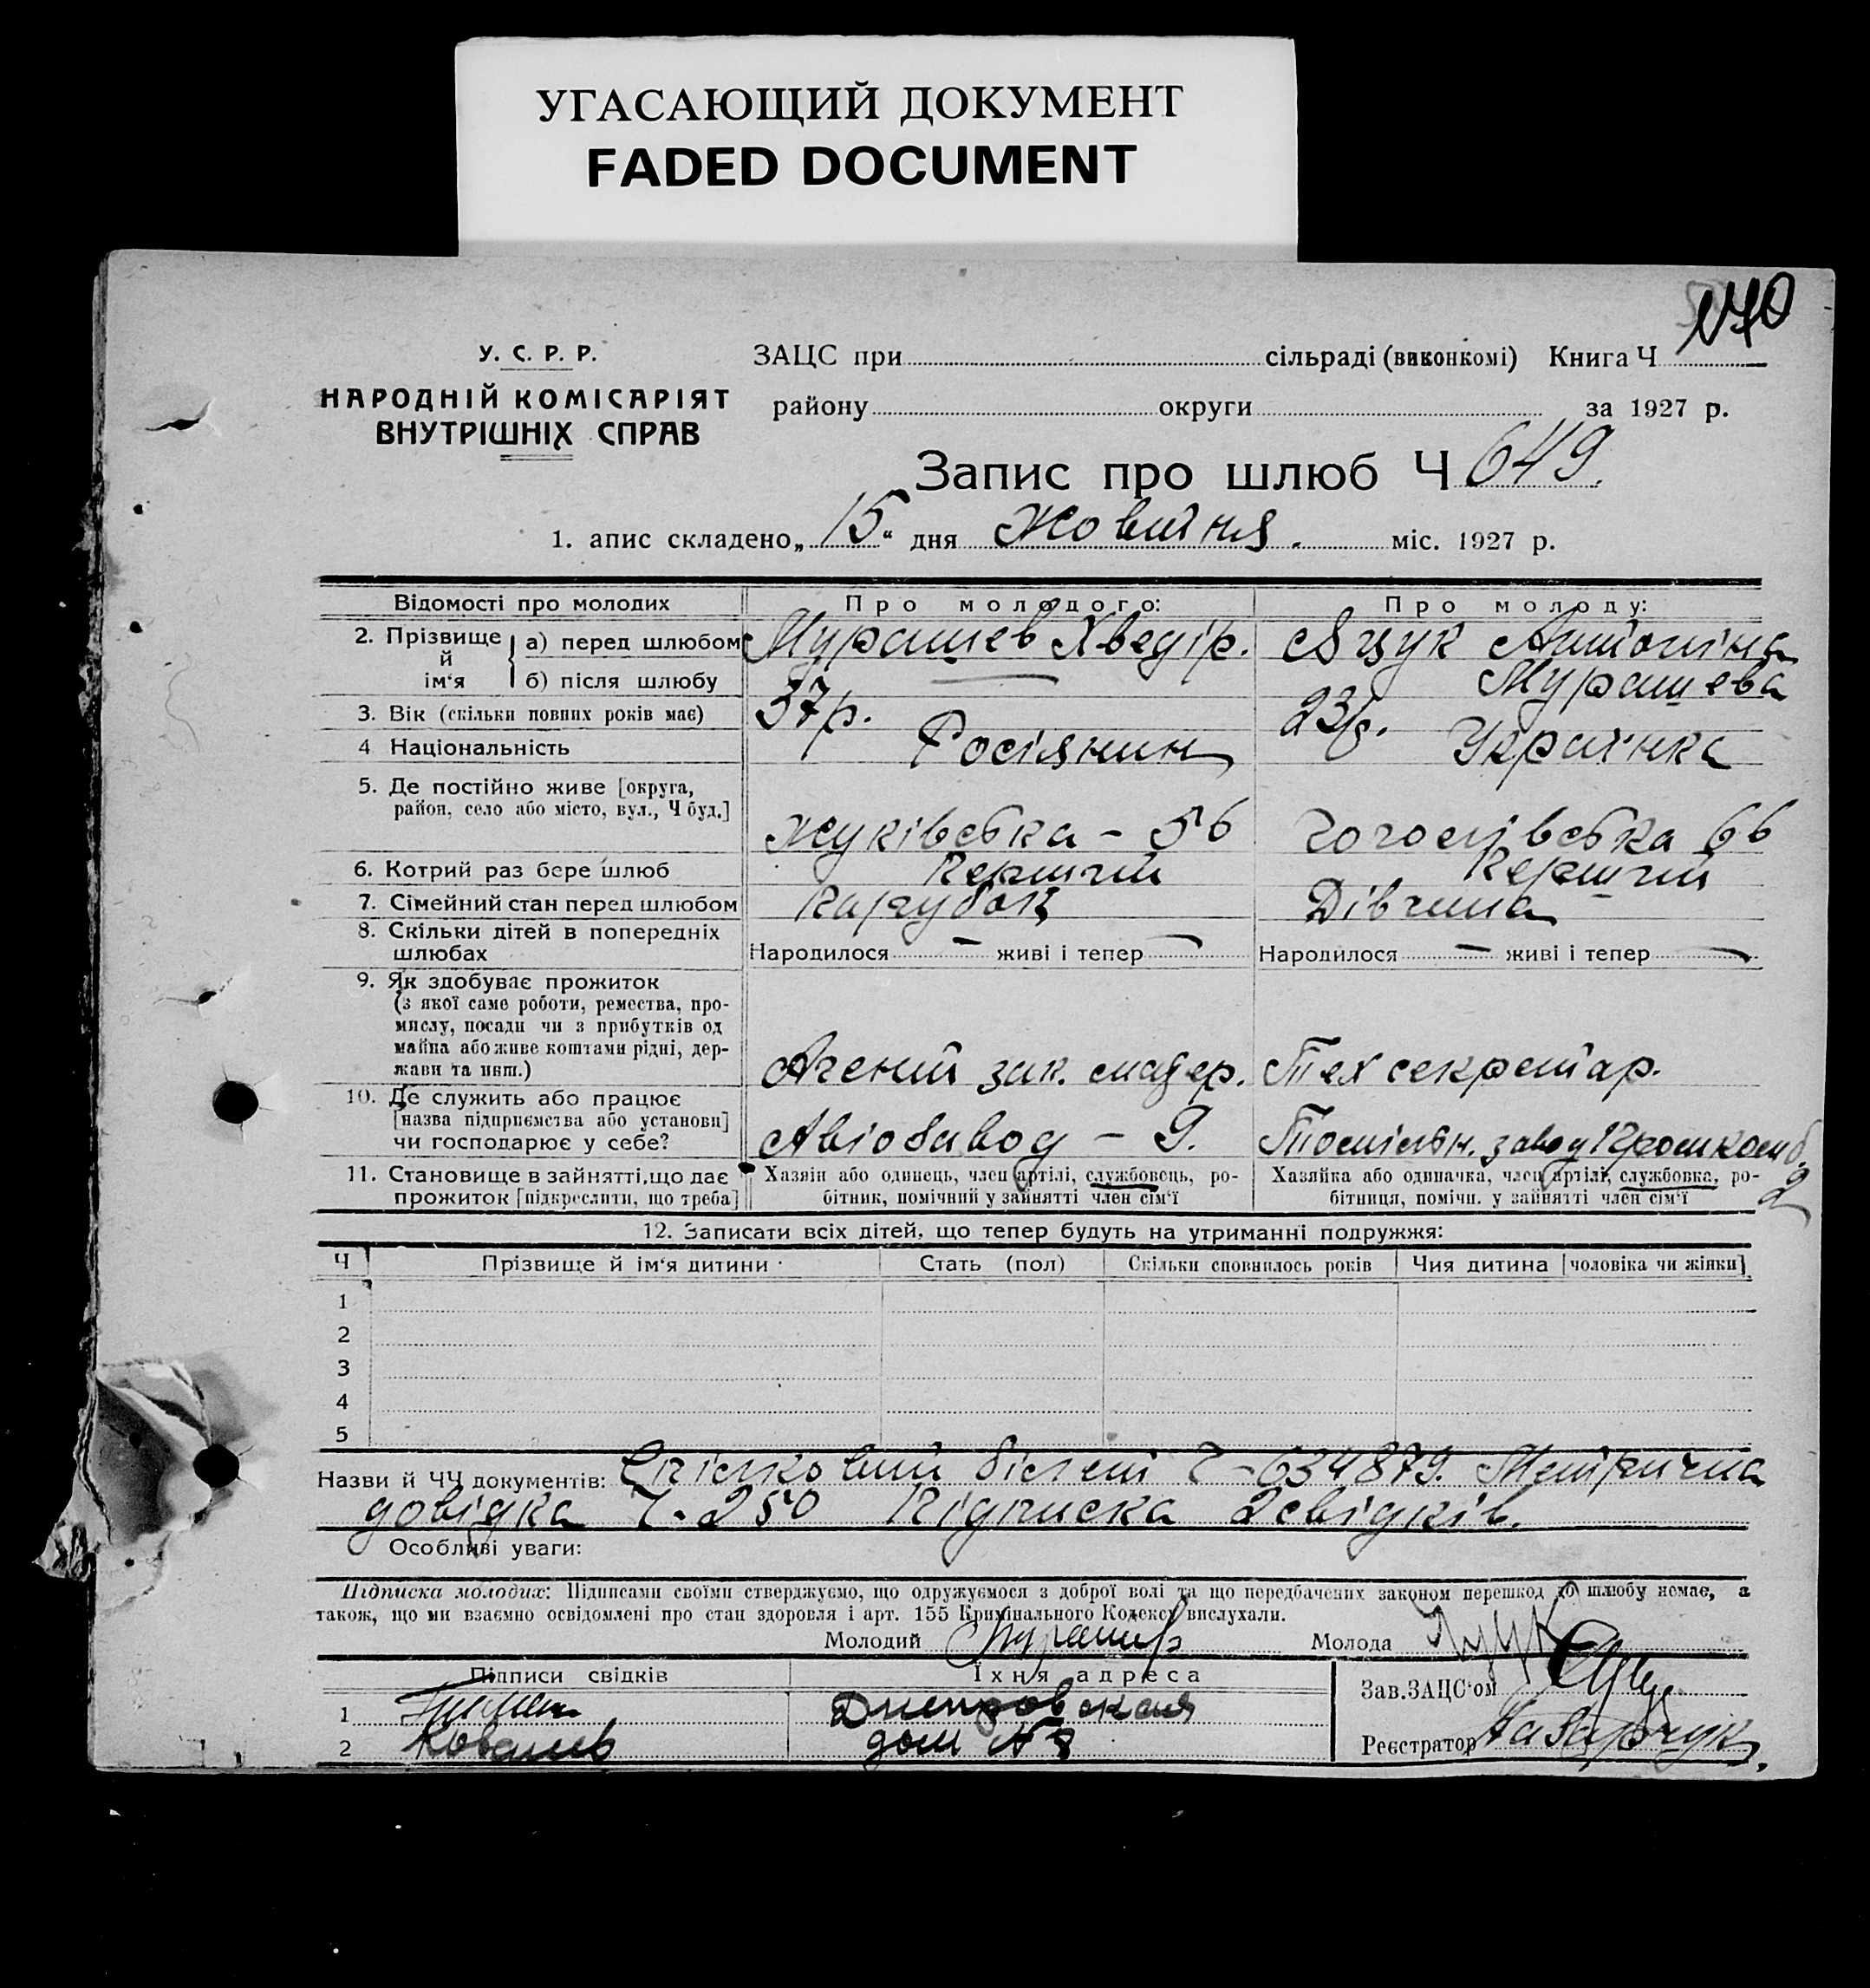 УГАСАЮЩИЙ ДОКУМЕНТ
FADED DOCUMENT
У. С. Р. Р.
НАРОДНІЙ КОМІСАРІЯТ
ВНУТРІШНІХ СПРАВ
ЗАЦС при сільраді (виконкомі) Книга Ч
району округи за 1927 р.
Запис про шлюб Ч 649.
1. апис складено „15“ дня Жовтня. міс. 1927 р.
Відомості про молодих Про молодого: Про молоду:
2. Прізвище й ім‘я а) перед шлюбом Мурашев Хведір. Яцук Антоніна
б) після шлюбу Мурашева
3. Вік (скільки повних років має) 37р. 23р.
4 Національність Росіянин Українка
5. Де постійно живе [округа,
район, село або місто, вул., Ч буд.] Жуківська - 56 Гоголівська 66
6. Котрий раз бере шлюб Перший Перший
7. Сімейний стан перед шлюбом Парубок Дівчина
8. Скільки дітей в попередніх
шлюбах Народилося — живі і тепер — Народилося — живі і тепер —
9. Як здобуває прожиток
(з якої саме роботи, ремества, про-
мислу, посади чи з прибутків од
майна або живе коштами рідні, дер-
жави та инш.) Агент зак. матер. Тех секретар.
10. Де служить або працює
[назва підприємства або установи]
чи господарює у себе? Авіозавод - 9. завод
11. Становище в зайнятті, що дає
прожиток [підкреслити, що треба]
Хазяїн або одинець, член артілі, службовець, ро-
бітник, помічний у зайнятті член сім‘ї
Хазяйка або одиначка, член артілі, службовка, ро-
бітниця, помічн. у зайнятті член сім‘ї
12. Записати всіх дітей, що тепер будуть на утриманні подружжя:
Ч Прізвище й ім‘я дитини Стать (пол) Скільки сповнилось років Чия дитина [чоловіка чи жінки]
1
2
3
4
5
Назви й ЧЧ документів: Спілковий білет Ч-634879. Метрична
довідка Ч-250 Підписка 2 свідків.
Особливі уваги:
Підписка молодих: Підписами своїми стверджуємо, що одружуємося з доброї волі та що передбачених законом перешкод до шлюбу немає, а
також, що ми взаємно освідомлені про стан здоровля і арт. 155 Кримінального Кодексу вислухали.
Молодий Молода Яцук
Підписи свідків Їхня адреса Зав. ЗАЦС‘ом
1 Днепровская
2 Ковалев дом № Реєстратор